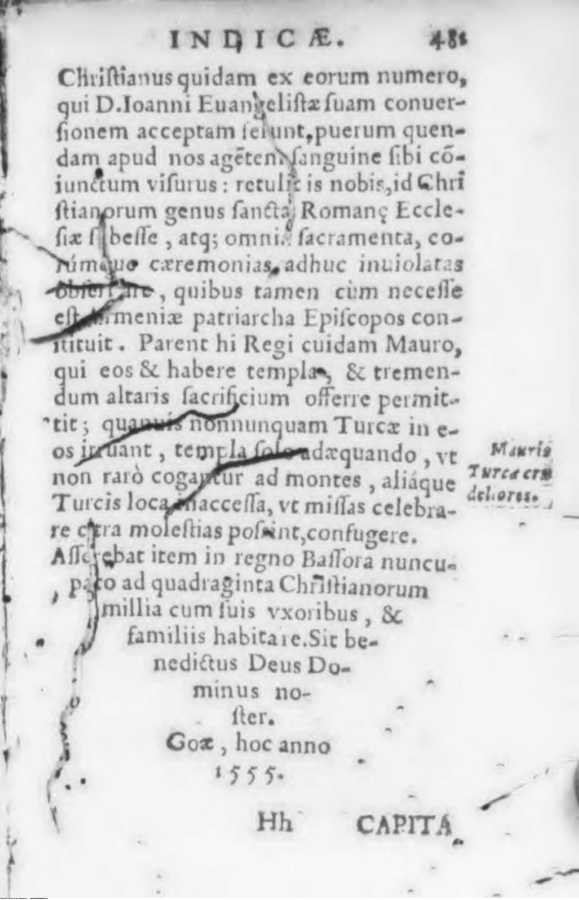 INDICÆ. 481
Chriſtianus quidam ex eorum numero,
qui D.Ioanni Euangeliſtæ ſuam conuer-
ſionem acceptam ferunt, puerum quen-
dam apud nos agētem ſanguine ſibi cō-
iunctum viſurus : retulit is nobis, id Chri
ſtianorum genus ſanctæ Romanę Eccle-
ſiæ ſubeſſe , atq; omnia ſacramenta, eo-
rúmque cæremonias, adhuc inuiolatas
obſeruare , quibus tamen cùm neceſſe
eſt Armeniæ patriarcha Epiſcopos con-
ſtituit. Parent hi Regi cuidam Mauro,
qui eos & habere templa, & tremen-
dum altaris ſacrificium offerre permit-
tit; quamuis nonnunquam Turcæ in e-
os irruant , templa ſolo adæquando , vt
non rarò cogantur ad montes , aliáque
Turcis loca inacceſſa, vt miſſas celebra-
re citra moleſtias poſsint, confugere.
Mauris
Turcæ
deliores.
Aſſerebat item in regno Baſſora nuncu-
pato ad quadraginta Chriſtianorum
millia cum ſuis vxoribus , &
familiis habitare. Sit be-
nedictus Deus Do-
minus no-
ſter.
Goæ , hoc anno
1555.
Hh CAPITA